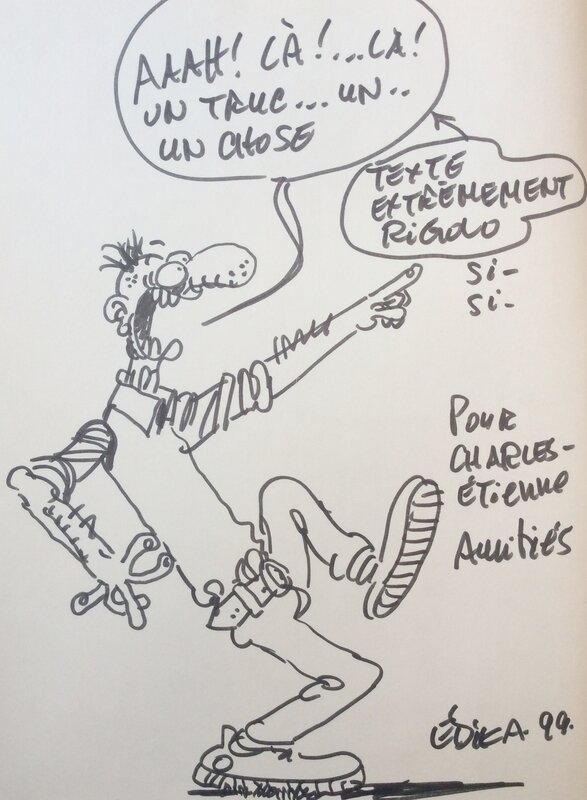 AAAH! LÀ!...LA!
UN TRUC... UN..
UN CHOSE
TEXTE
EXTRÊMEMENT
RIGOLO
Si-
Si-
POUR
CHARLES-
ÉTIENNE
AMITIÉS
ÉDIKA. 99.